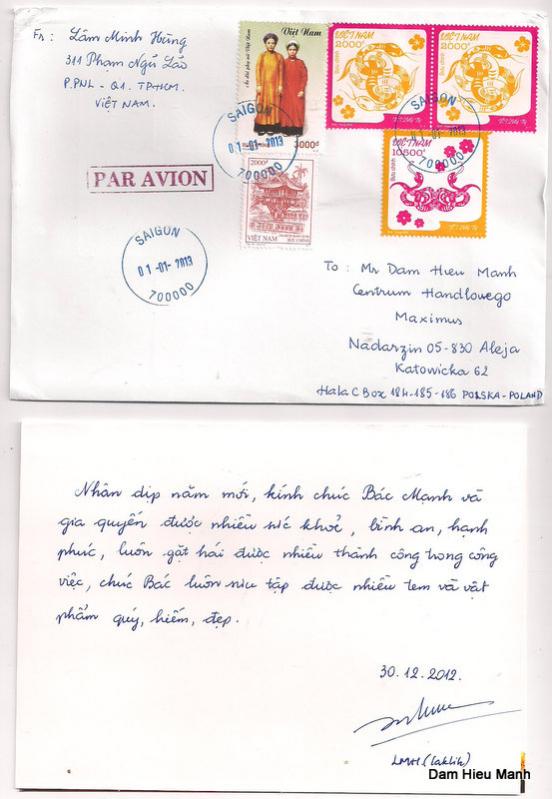 Fr : Lâm Minh Hùng
311 Phạm Ngũ Lão
P.PNL - Q1. TPHCM.
VIỆT NAM.
Áo dài phụ nữ Việt Nam
Việt Nam
3000đ
VIỆT NAM
2000đ
BƯU CHÍNH
VIỆT NAM
2000đ
SAIGON
01-01-2013
700000
SAIGON
01-01-2013
700000
PAR AVION
2000đ
VIỆT NAM
BƯU CHÍNH
VIỆT NAM
10500đ
BƯU CHÍNH
SAIGON
01-01-2013
700000
To : Mr Dam Hieu Manh
Centrum Handlowego
Maximus
Nadarzin 05-830 Aleja
Katowicka 62
Hala C Box 184-185-186 POLSKA-POLAND
Nhân dịp năm mới, kính chúc Bác Mạnh và
gia quyến được nhiều sức khoẻ, bình an, hạnh
phúc, luôn gặt hái được nhiều thành công trong công
việc, chúc Bác luôn sưu tập được nhiều tem và vật
phẩm quý, hiếm, đẹp.
30.12.2012.
LMH (laklih)
Dam Hieu Manh